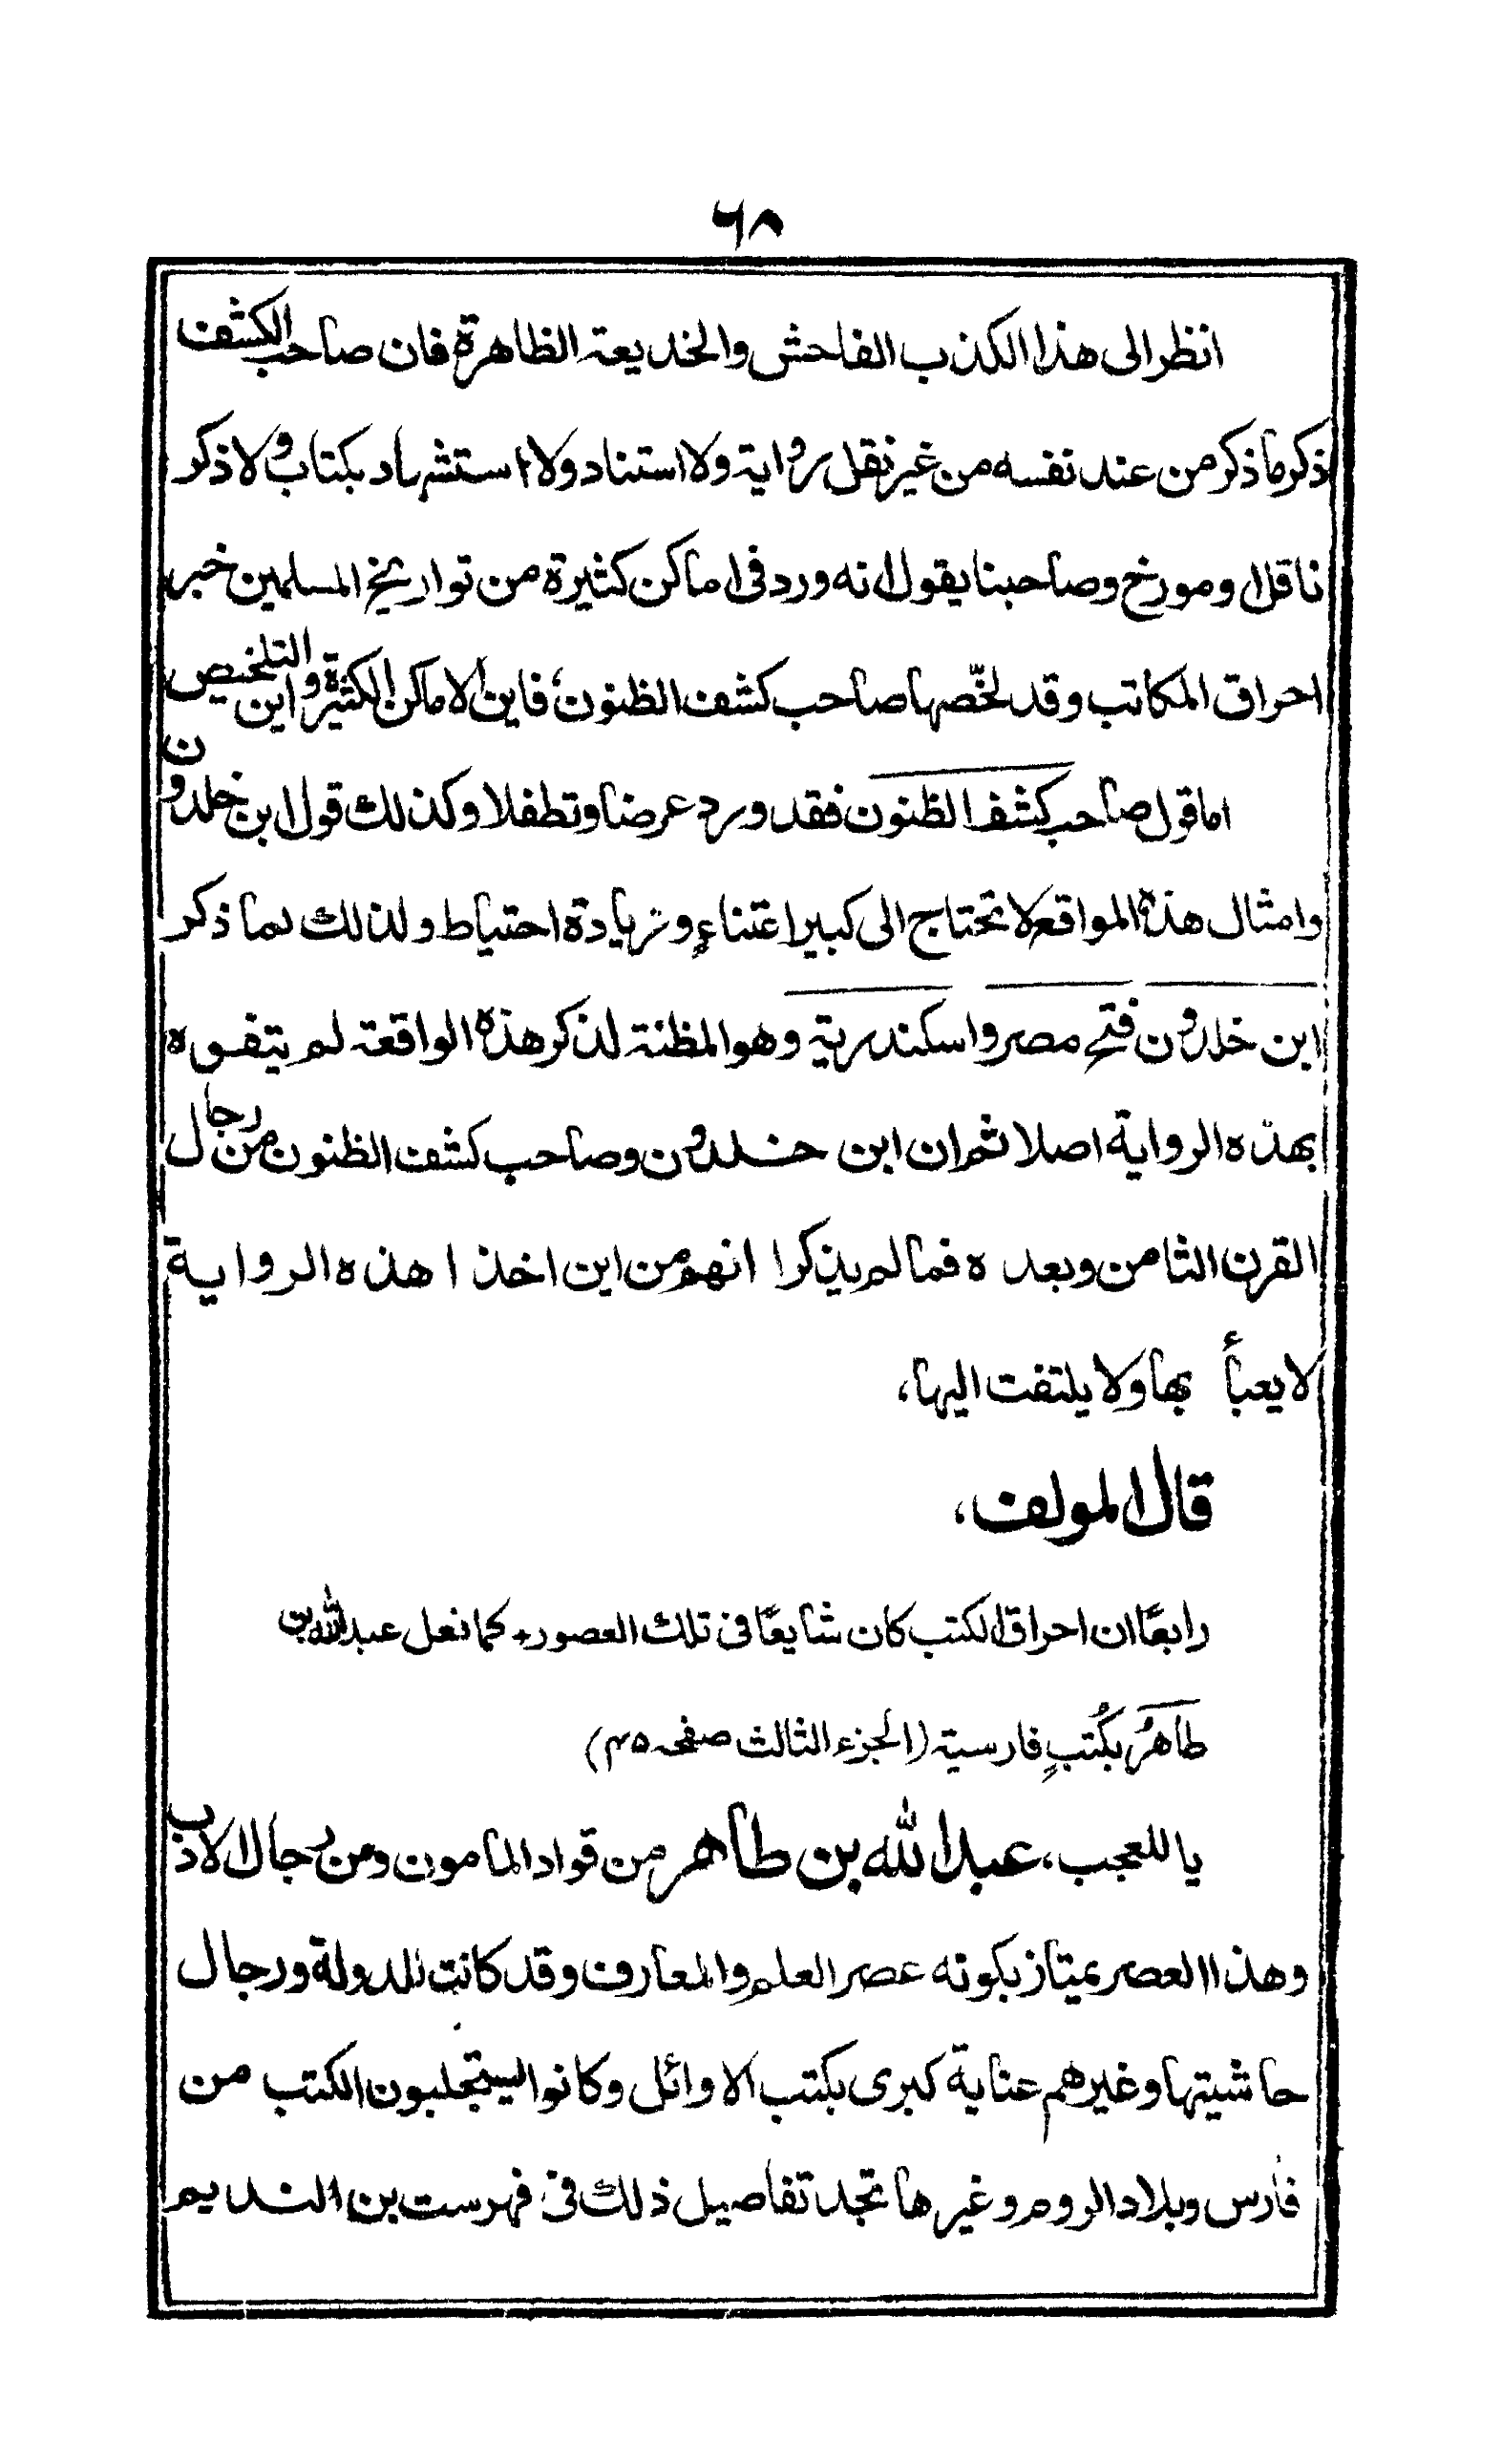 ٦٨
انظر الى هذا الكذب الفاحش والخديعة الظاهرة فان صاحب الكشف
ذكر ما ذكر من عند نفسه من غير نقل رواية ولا استناد ولا استشهاد بكتاب ولا ذكر
ناقل او مورخ وصاحبنا يقول انه ورد فى اماكن كثيرة من تواريخ المسلمين خبر
احراق المكاتب وقد لخّصها صاحب كشف الظنون، فاين الاماكن الكثيرة واين التلخيص
اما قول صاحب كشف الظنون فقد ورد عرضا وتطفلا وكذلك قول ابن خلدون
وامثال هذه المواقع لا تحتاج الى كبير اعتناءٍ وزيادة احتياط ولذلك لما ذكر
ابن خلدون فتح مصر واسكندرية وهو المظنة لذكر هذه الواقعة لم يتفوه
بهذه الرواية اصلا ثم ان ابن خلدون وصاحب كشف الظنون من رجال
القرن الثامن وبعده فما لم يذكرا انهم من اين اخذا هذه الرواية
لا يعبأ بها ولا يلتفت اليها،
قال المولف،
رابعًا ان احراق الكتب كان شايعًا فى تلك العصور، كما فعل عبدالله بن
طاهرُ بكُتبٍ فارسية (الجزء الثالث صفحه ٤٥)
يا للعجب، عبدالله بن طاهر من قواد المامون ومن رجال الادب
وهذا العصر يمتاز بكونه عصر العلم والمعارف وقد كانت للدولة ورجال
حاشيتها وغيرهم عناية كبرى بكتب الاوائل وكانوا يستجلبون الكتب من
فارس وبلاد الروم وغيرها تجد تفاصيل ذلك فى فهرست بن النديم